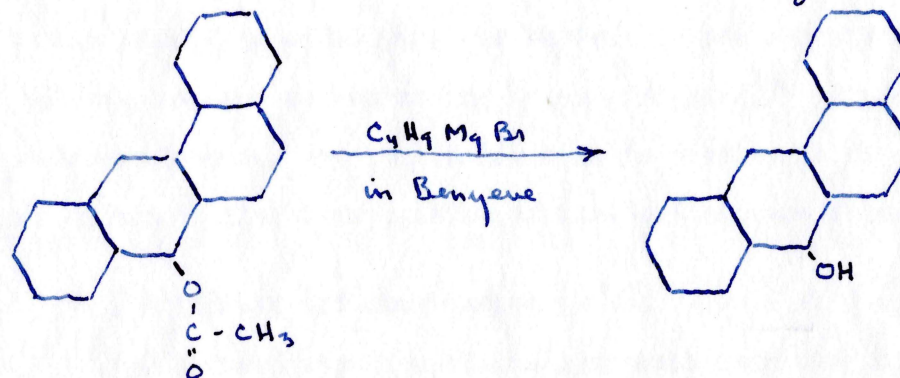 C4H9 Mg Br
in Benzene
OH
O
C - CH3
O